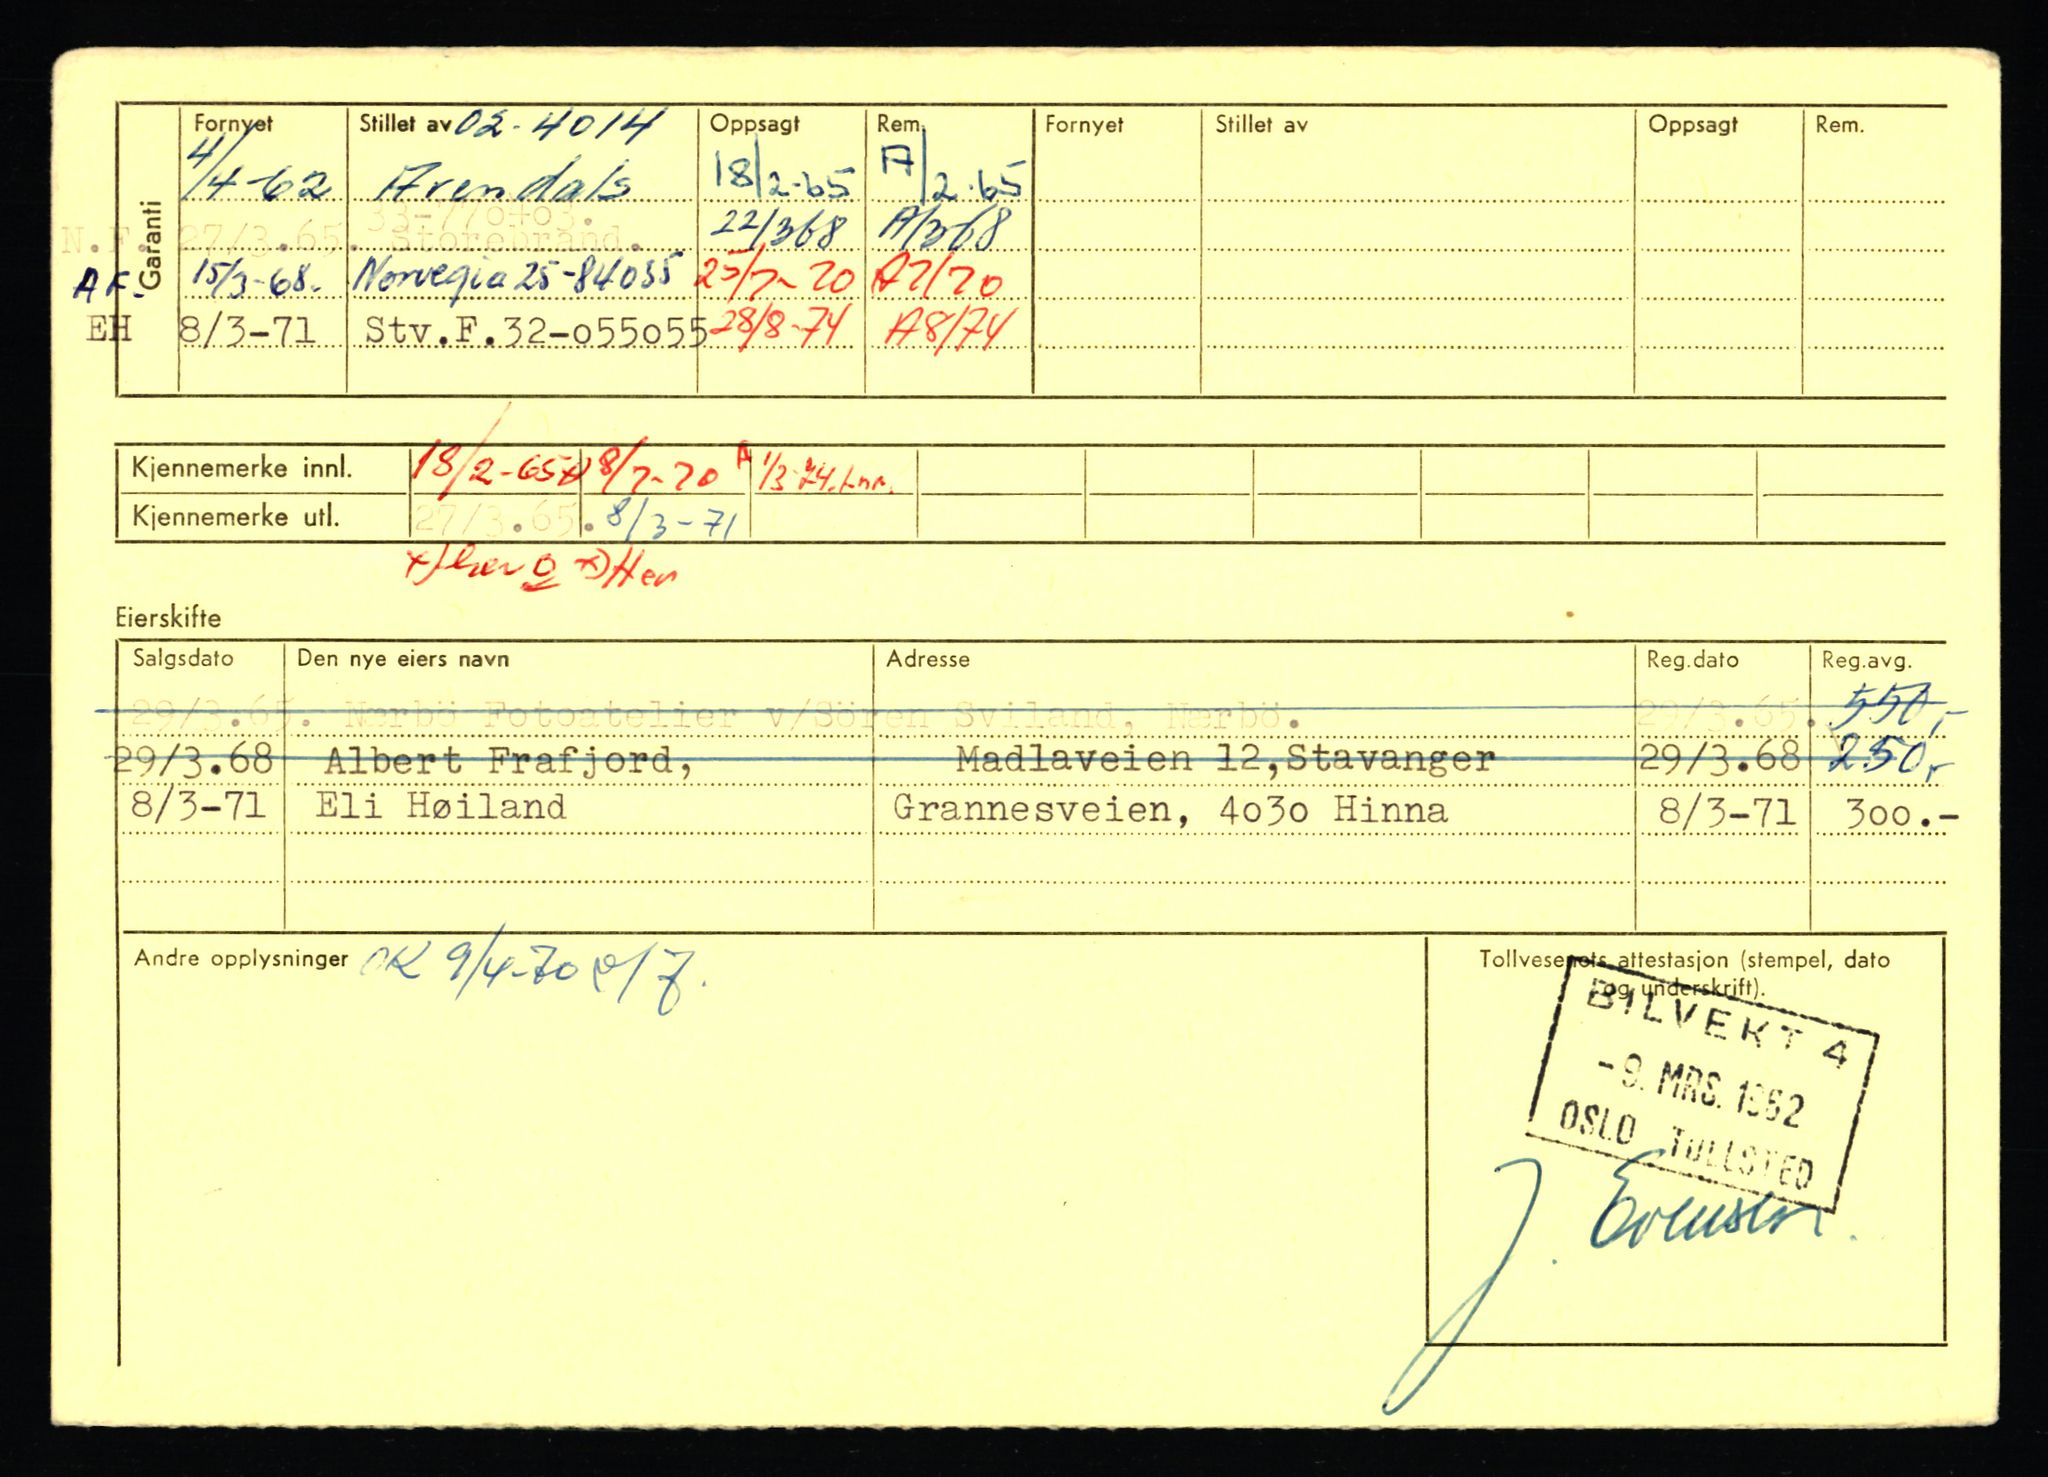 Garanti
Fornyet Stillet av 02-4014 Oppsagt Rem. Fornyet Stillet av Oppsagt Rem.
4/4-62 Arendals 18/2-65 A/2-65
33-770403.
N.F. 27/3.65. Storebrand. 22/368 A/368
AF. 15/3-68. Norvegia 25-84055 25/7-70 A7/70
EH 8/3-71 Stv.F.32-055055 28/8-74 A8/74
Kjennemerke innl. 18/2-65x) 8/7-70 1/3-74.
Kjennemerke utl. 27/3.65. 8/3-71
x) her 0 x) Her
Eierskifte
Salgsdato Den nye eiers navn Adresse Reg.dato Reg.avg.
29/3.65. Nærbö Fotoatelier v/Sören Sviland, Nærbö. 29/3.65. 550,-
29/3.68 Albert Frafjord, Madlaveien 12,Stavanger 29/3.68 250,-
8/3-71 Eli Høiland Grannesveien, 4030 Hinna 8/3-71 300.-
Andre opplysninger OK 9/4-70
Tollvesenets attestasjon (stempel, dato
og underskrift).
BILVEKT 4
-9. MRS. 1962
OSLO TOLLSTED
J. Evensen.